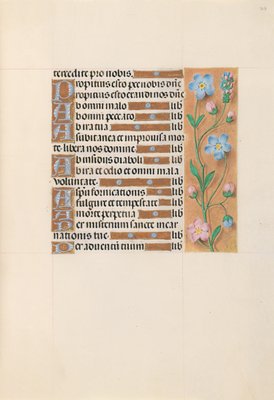 tercedite pro nobis.
Propitius esto parce nobis dñe
Propitius esto exaudi nos dñe
Ab omni malo lib
Ab omni peccato lib
Ab ira tua lib
A subitanea et improuisa mor
te libera nos domine. lib
Ab insidiis diaboli lib
Ab ira et odio et omni mala
voluntate lib
A spū fornicationis lib
A fulgure et tempestate lib
A morte perpetua lib
Per misterium sancte incar
nationis tue lib
Per aduentū tuum lib